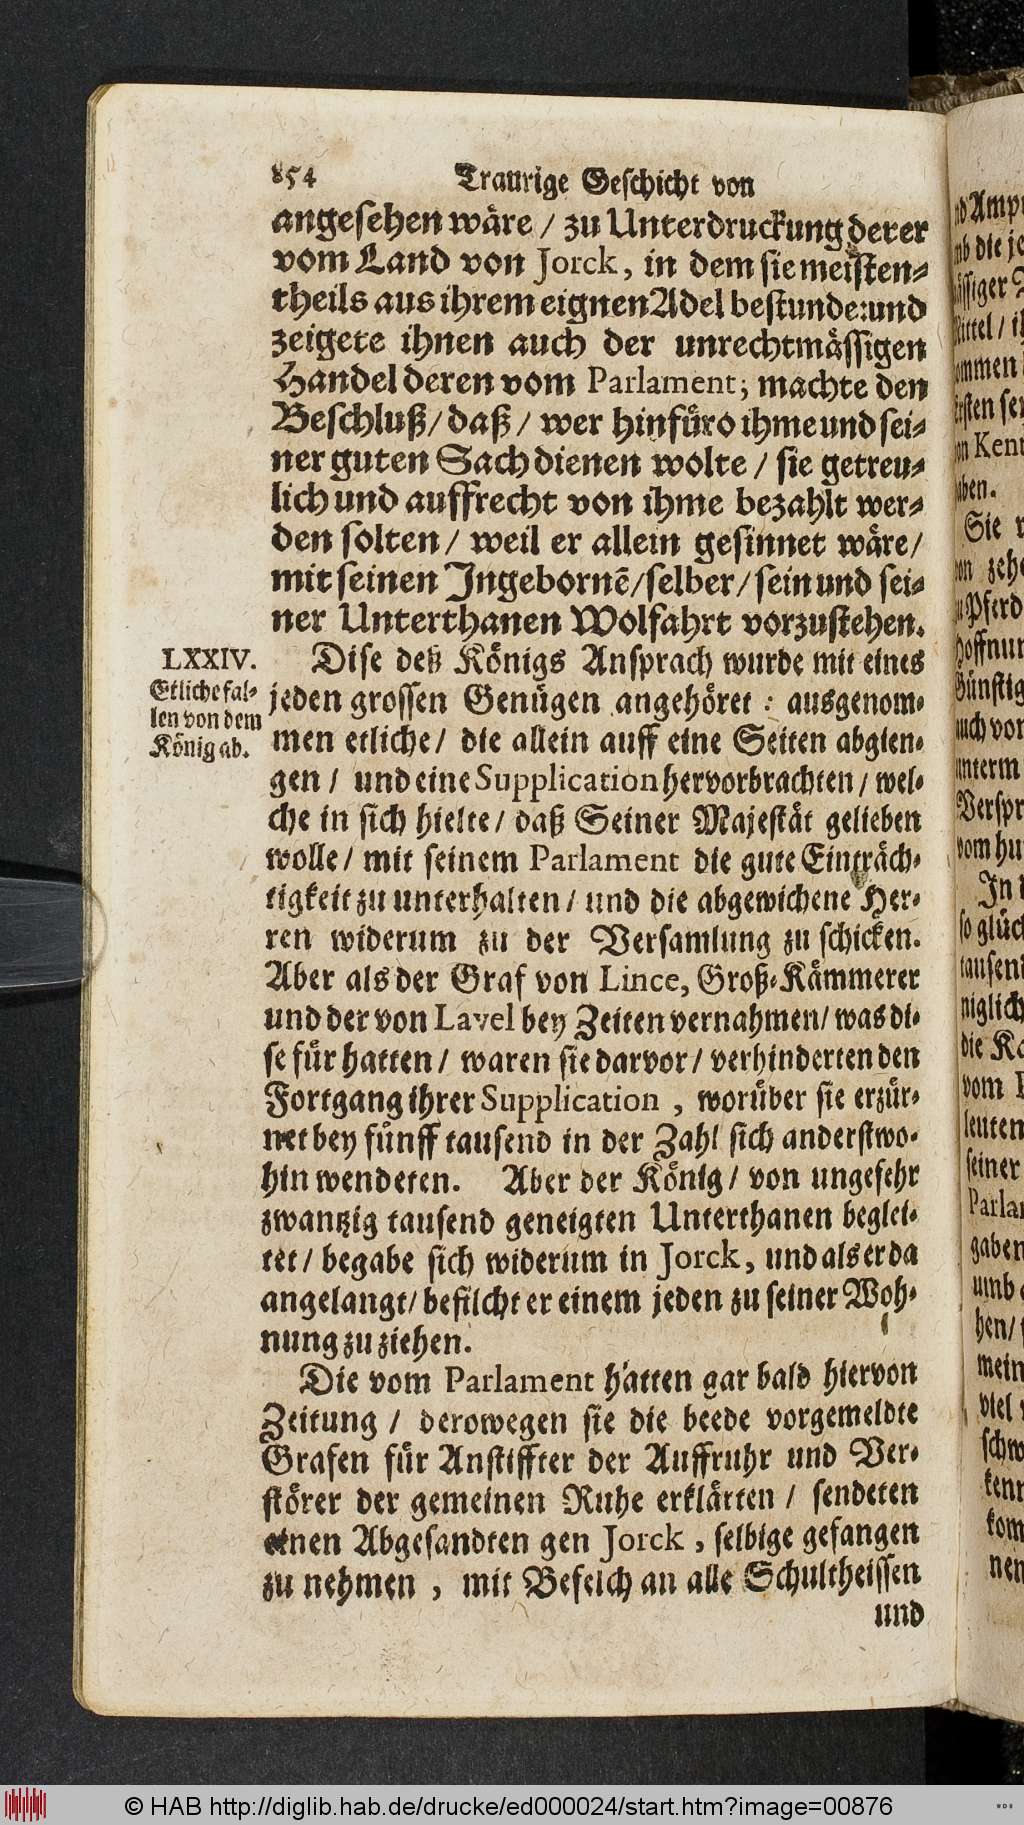 854 Traurige Geschicht von
angesehen wäre / zu Unterdruckung derer
vom Land von Jorck, in dem sie meisten-
theils aus ihrem eignen Adel bestunde: und
zeigete ihnen auch der unrechtmässigen
Handel deren vom Parlament; machte den
Beschluß / daß / wer hinfüro ihme und sei-
ner guten Sach dienen wolte / sie getreu-
lich und auffrecht von ihme bezahlt wer-
den solten / weil er allein gesinnet wäre /
mit seinen Ingebornē / selber / sein und sei-
ner Unterthanen Wolfahrt vorzustehen.
LXXIV.
Etliche fal-
len von dem
König ab.
Dise deß Königs Ansprach wurde mit eines
jeden grossen Genügen angehöret : ausgenom-
men etliche / die allein auff eine Seiten abgien-
gen / und eine Supplication hervorbrachten / wel-
che in sich hielte / daß Seiner Majestät gelieben
wolle / mit seinem Parlament die gute Einträch-
tigkeit zu unterhalten / und die abgewichene Her-
ren widerum zu der Versamlung zu schicken.
Aber als der Graf von Lince, Groß-Kämmerer
und der von Lavel bey Zeiten vernahmen / was di-
se für hatten / waren sie darvor / verhinderten den
Fortgang ihrer Supplication , worüber sie erzür-
net bey fünff tausend in der Zahl sich anderstwo-
hin wendeten. Aber der König / von ungefehr
zwantzig tausend geneigten Unterthanen beglei-
tet / begabe sich widerum in Jorck, und als er da
angelangt / befilcht er einem jeden zu seiner Woh-
nung zu ziehen.
Die vom Parlament hatten gar bald hiervon
Zeitung / derowegen sie die beede vorgemeldte
Grafen für Anstiffter der Auffruhr und Ver-
störer der gemeinen Ruhe erklärten / sendeten
einen Abgesandten gen Jorck , selbige gefangen
zu nehmen , mit Befelch an alle Schultheissen
und
die
Kent
Sie
Pferd
In
so glück
tausend
niglich
die
vom
leuten
seiner
umb
hen /
mein
viel
© HAB http://diglib.hab.de/drucke/ed000024/start.htm?image=00876